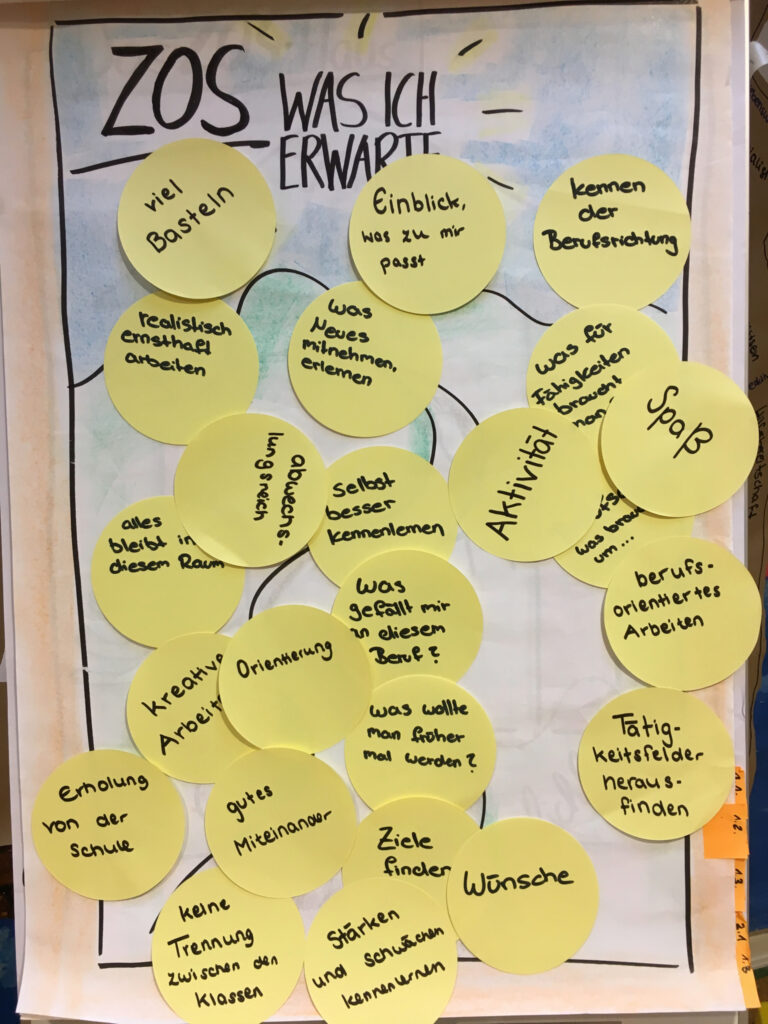 ZOS WAS ICH
ERWARTE
viel
Basteln
Einblick,
was zu mir
passt
kennen
der
Berufsrichtung
realistisch
ernsthaft
arbeiten
was
Neues
mitnehmen,
erlernen
was für
Fähigkeiten
braucht
man
Spaß
abwechs-
lungsreich
selbst
besser
kennenlernen
Aktivität
was brau
um...
alles
bleibt in
diesem Raum
was
gefällt mir
an diesem
Beruf?
berufs-
orientiertes
Arbeiten
kreative
Arbeit
Orientierung
was wollte
man früher
mal werden?
Tätig-
keitsfelder
heraus-
finden
Erholung
von der
Schule
gutes
Miteinander
Ziele
finden
Wünsche
keine
Trennung
zwischen den
Klassen
Stärken
und schwächen
kennenlernen
1.2.
1.3
2.1
1.3